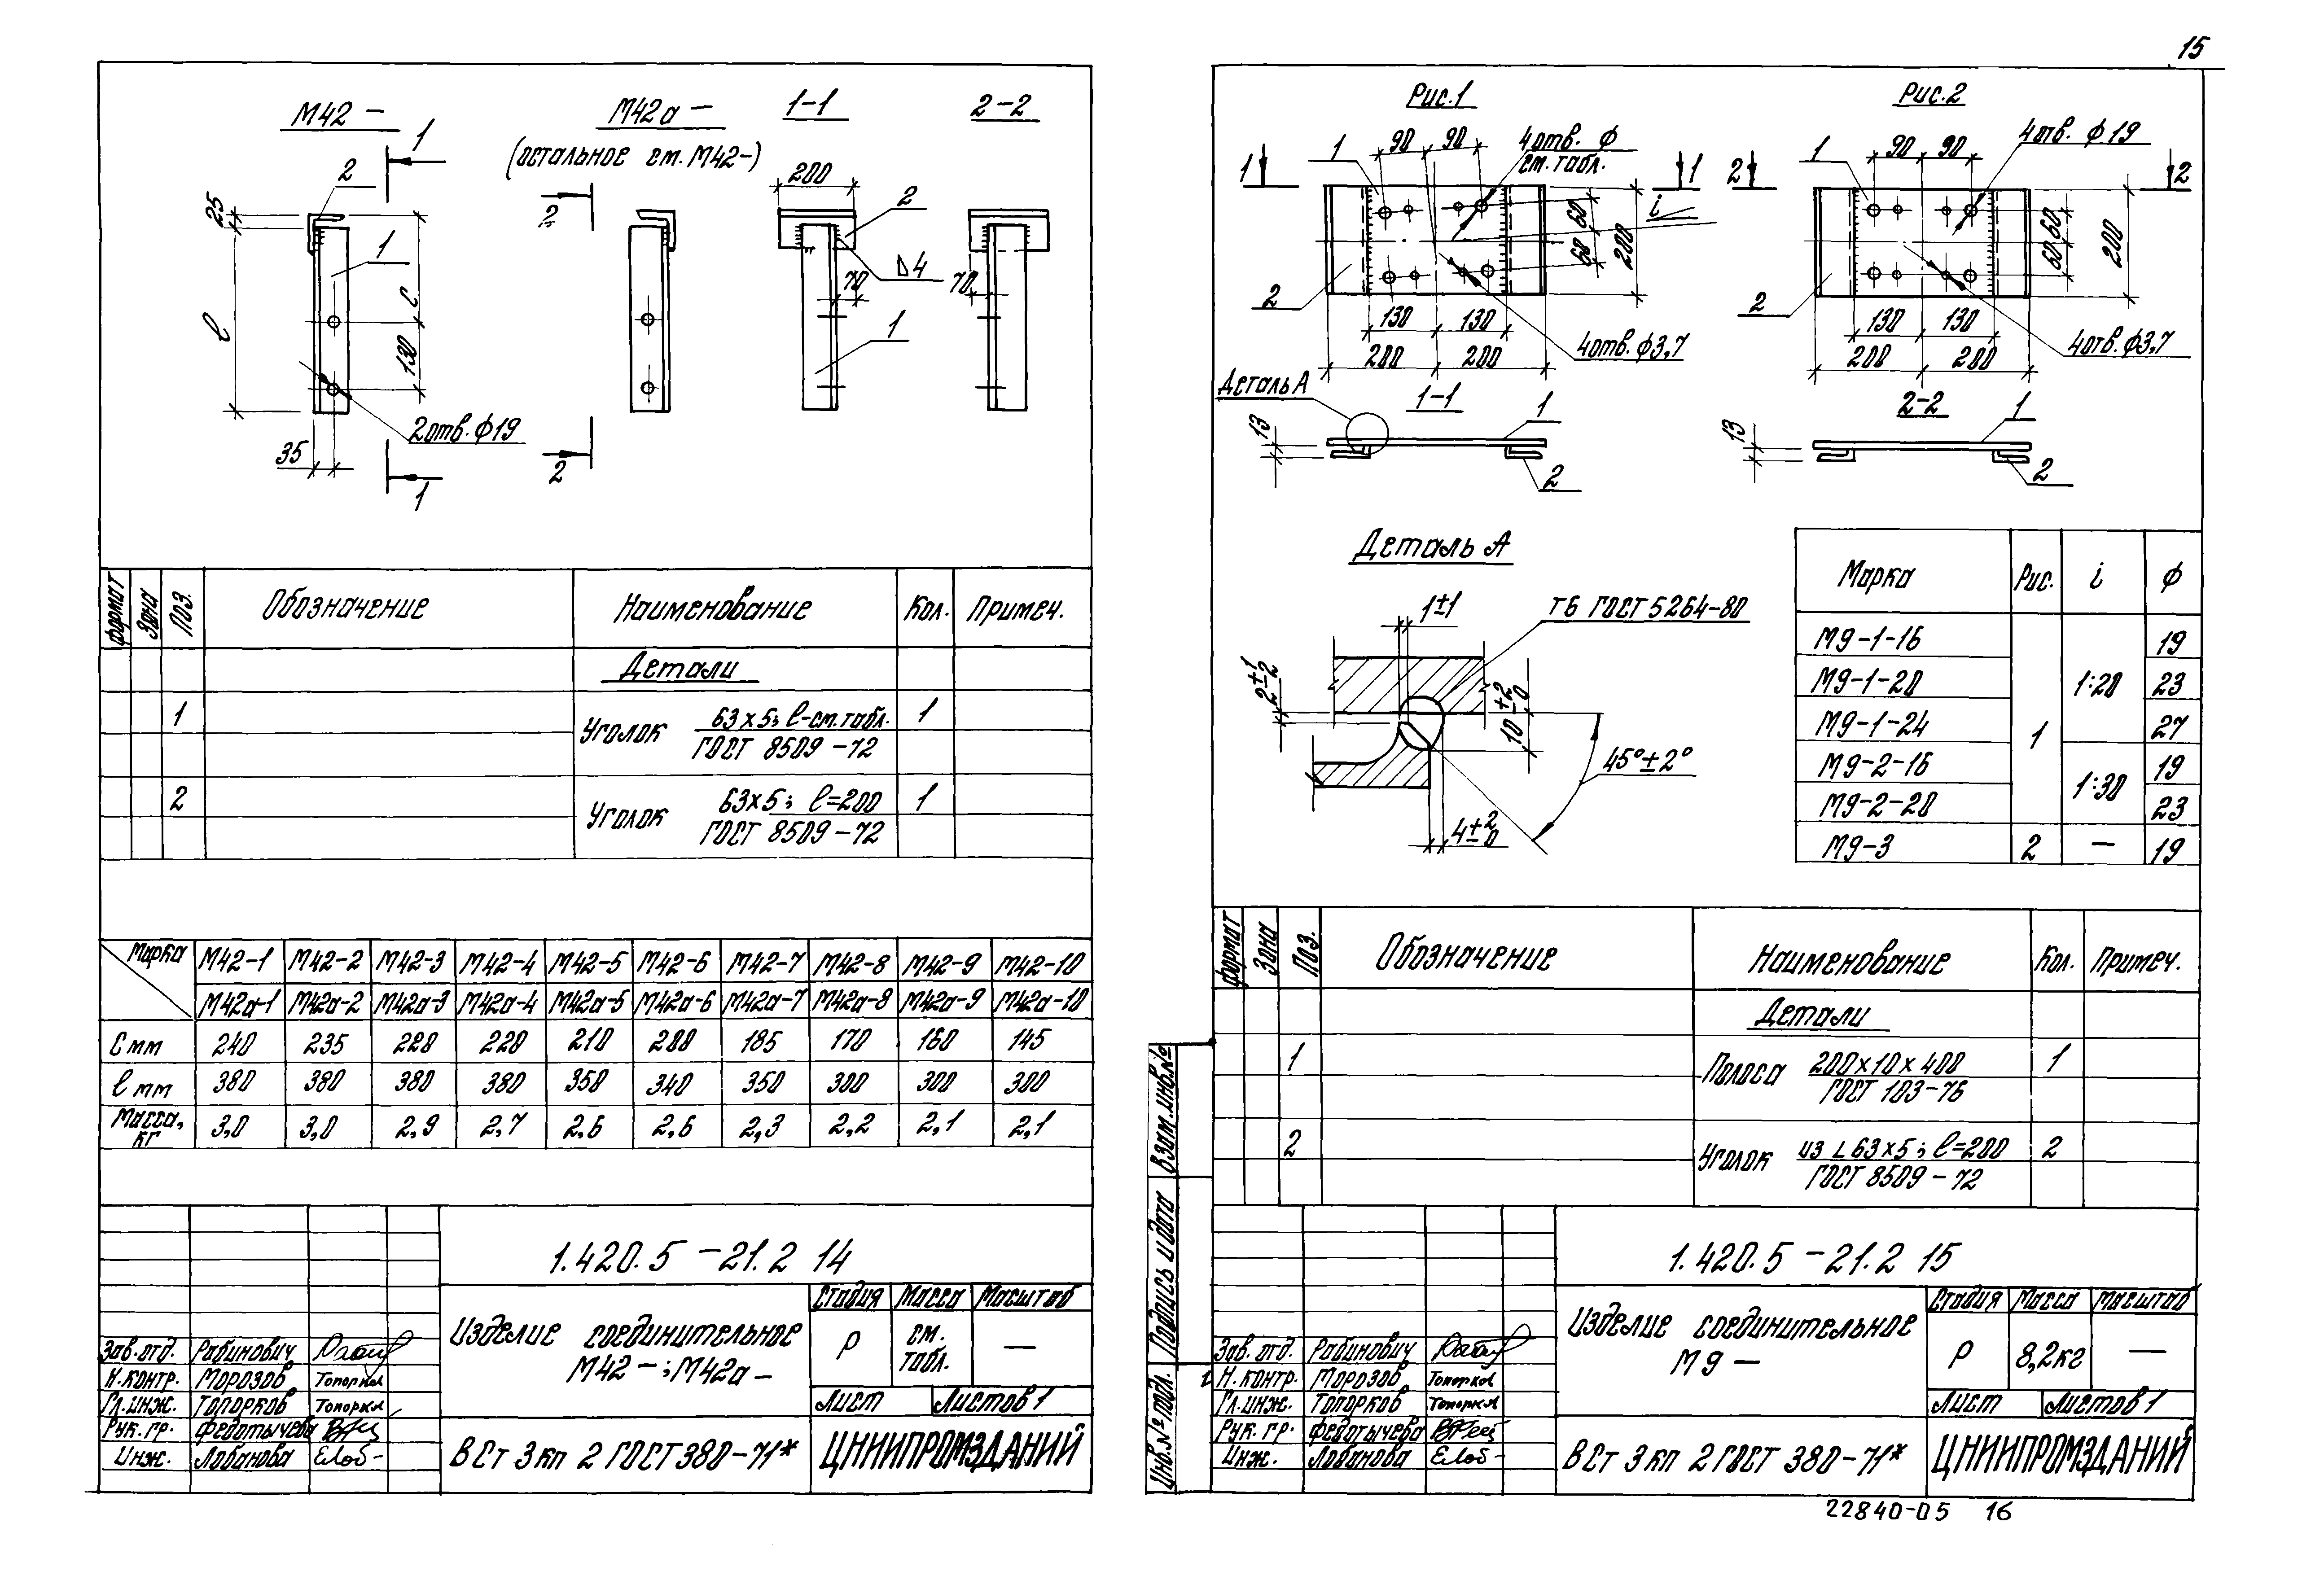 15
М42 –
М42а –
(остальное см. М42–)
1–1
2–2
1
2
25
1
ℓ
C
130
2отв. ϕ19
35
1
2
2
200
2
Δ4
70
1
70
Формат
Зона
Поз.
Обозначение
Наименование
Кол.
Примеч.
Детали
1
Уголок 63×5; ℓ-см.табл. 1
ГОСТ 8509–72
2
Уголок 63×5; ℓ=200 1
ГОСТ 8509–72
Марка М42–1 М42–2 М42–3 М42–4 М42–5 М42–6 М42–7 М42–8 М42–9 М42–10
М42а–1 М42а–2 М42а–3 М42а–4 М42а–5 М42а–6 М42а–7 М42а–8 М42а–9 М42а–10
C мм 240 235 220 220 210 200 185 170 160 145
ℓ мм 380 380 380 380 350 340 350 300 300 300
Масса, кг 3,0 3,0 2,9 2,7 2,6 2,6 2,3 2,2 2,1 2,1
1.420.5 –21.2 14
Изделие соединительное
М42 –; М42а –
Стадия Масса Масштаб
Р см. табл. —
Лист Листов 1
Зав. отд. Рабинович
Н.контр. Морозов Топорков
Гл.инж. Топорков Топорков
Рук. гр. Федотычева
Инж. Лобанова Елоб-
ВСт 3 кп 2 ГОСТ 380–71*
ЦНИИПРОМЗДАНИЙ
Рис.1
1
1
90 90
4отв. ϕ
см. табл.
1
i
60
60
200
2
130 130
200 200
4отв. ϕ3,7
Деталь А
1–1
13
1
2
Рис.2
2
1
90 90
4отв. ϕ19
2
60
60
200
2
130 130
200 200
4отв. ϕ3,7
2–2
13
1
2
Деталь А
1±1
Т6 ГОСТ 5264–80
2±1/2
10±2/0
45°±2°
4±2/0
Марка Рис. i ϕ
М9–1–16 1 1:20 19
М9–1–20 23
М9–1–24 27
М9–2–16 1:30 19
М9–2–20 23
М9–3 2 — 19
Формат
Зона
Поз.
Обозначение
Наименование
Кол.
Примеч.
Детали
1
Полоса 200×10×400 1
ГОСТ 103–76
2
Уголок из L63×5; ℓ=200 2
ГОСТ 8509–72
Взам.инв.№
Подпись и дата
Инв.№ подл.
1.420.5 –21.2 15
Изделие соединительное
М9 –
Стадия Масса Масштаб
Р 8,2кг —
Лист Листов 1
Зав. отд. Рабинович
Н.контр. Морозов Топорков
Гл.инж. Топорков Топорков
Рук. гр. Федотычева
Инж. Лобанова Елоб-
ВСт 3 кп 2 ГОСТ 380–71*
ЦНИИПРОМЗДАНИЙ
22840-05 16